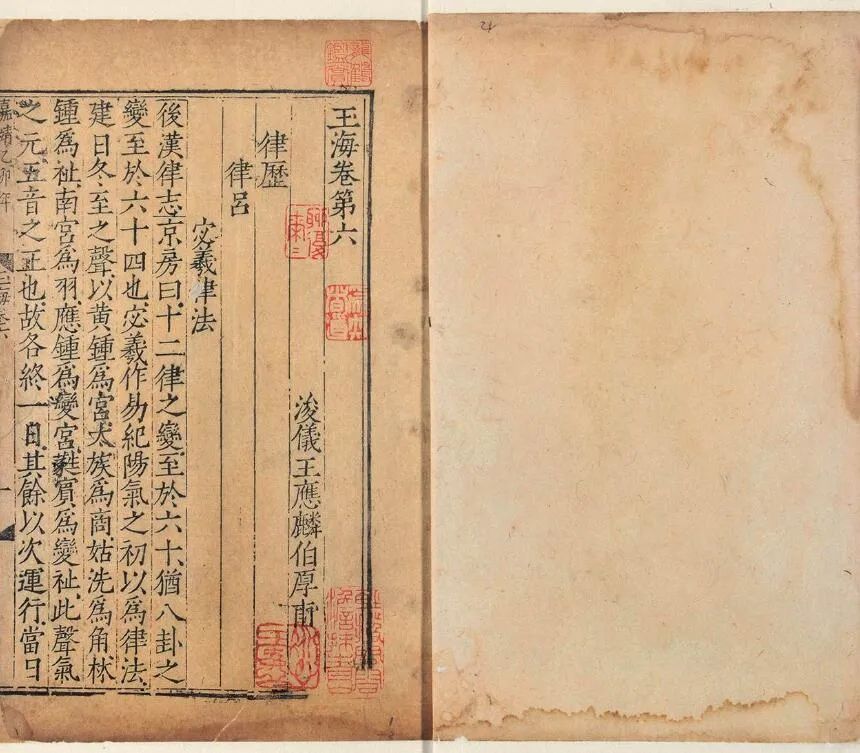 玉海卷第六
浚儀王應麟伯厚甫
律歷
律呂
宓羲律法
後漢律志京房曰十二律之變至於六十猶八卦之
變至於六十四也宓羲作易紀陽氣之初以爲律法
建日冬至之聲以黃鍾爲宮太族爲商姑洗爲角林
鍾爲祉南宮爲羽應鍾爲變宮蕤賓爲變祉此聲氣
之元五音之正也故各終一日其餘以次運行當日
嘉靖乙卯年